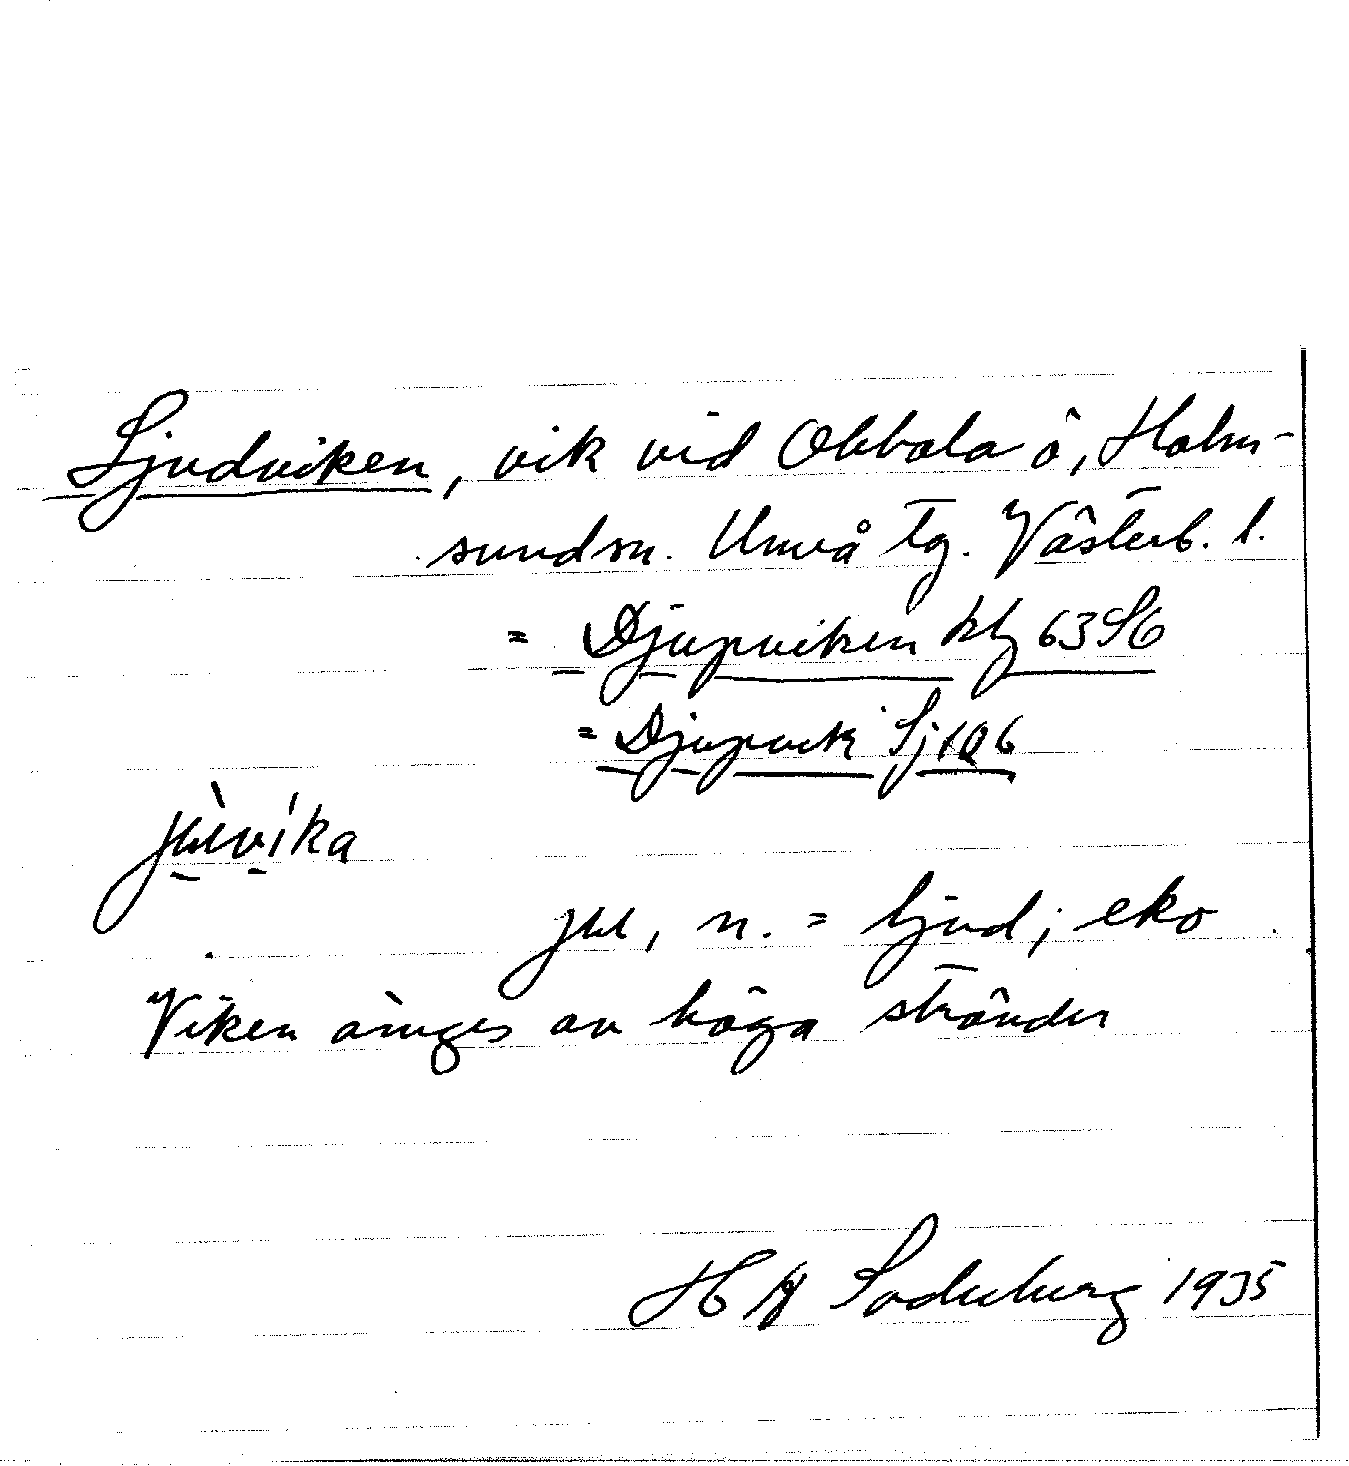 Ljudviken, vik vid Obbola ö, Holm-
sundsn. Umeå tg. Västerb. l.
= Djupviken kbl 63S6
= Djupvik Sj 106
n. = ljud; eko
Viken omges av höga stränder
H Söderberg 1935